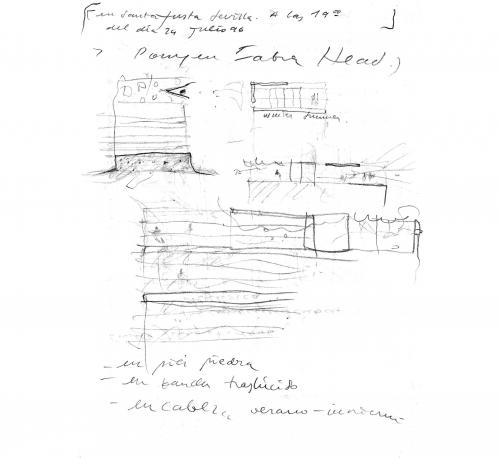 en Santa Justa Sevilla. A las 19ºº
del día 24 julio 96
Pompeu Fabra Head.)
winter summer
- en piel piedra
- en banda traslúcido
- en cabeza verano-invierno